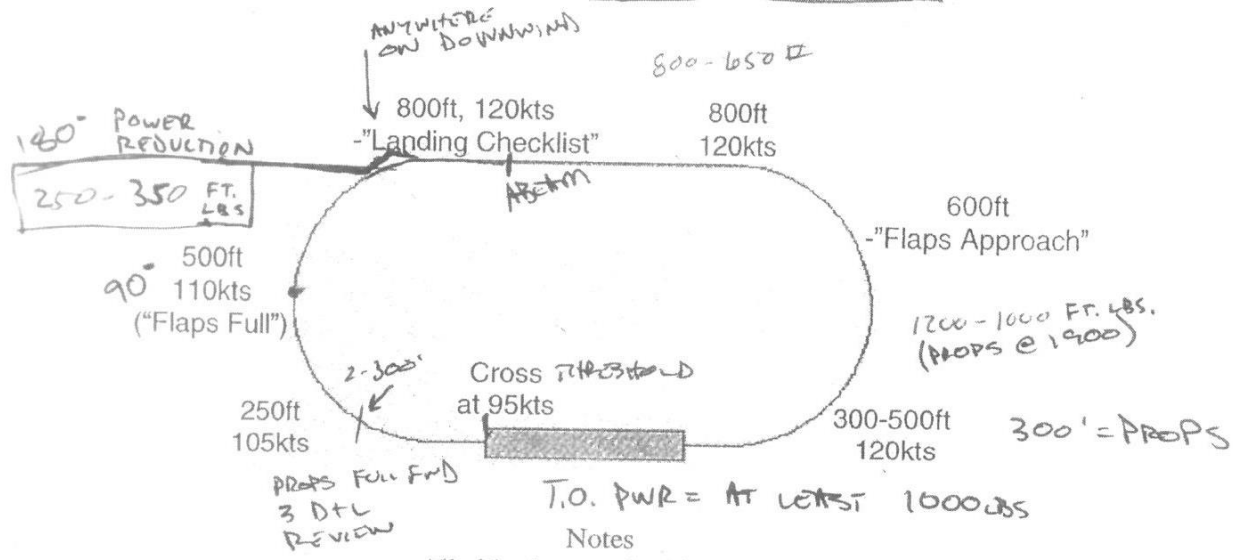 ANYWHERE
ON DOWNWIND
800ft, 120kts
-"Landing Checklist"
800ft
120kts
180° POWER
REDUCTION
250-350 FT.
LBS
ABEAM
600ft
-"Flaps Approach"
90°
500ft
110kts
("Flaps Full")
1200-1000 FT. LBS.
(PROPS @ 1900)
2-300'
Cross THRESHOLD
at 95kts
250ft
105kts
300-500ft
120kts
300' = PROPS
PROPS FULL FWD
3 D+L
REVIEW
T.O. PWR = AT LEAST 1000 LBS
Notes